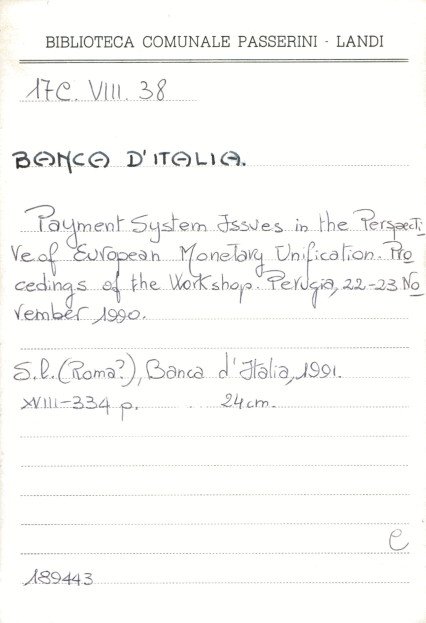 BIBLIOTECA COMUNALE PASSERINI - LANDI
17C. VIII. 38
BANCA D'ITALIA.
Payment System Issues in the Perspecti-
ve of European Monetary Unification. Pro
cedings of the Workshop. Perugia, 22-23 No
vember 1990.
S.l. (Roma?), Banca d'Italia, 1991.
XVIII-334 p. 24cm.
e
189443